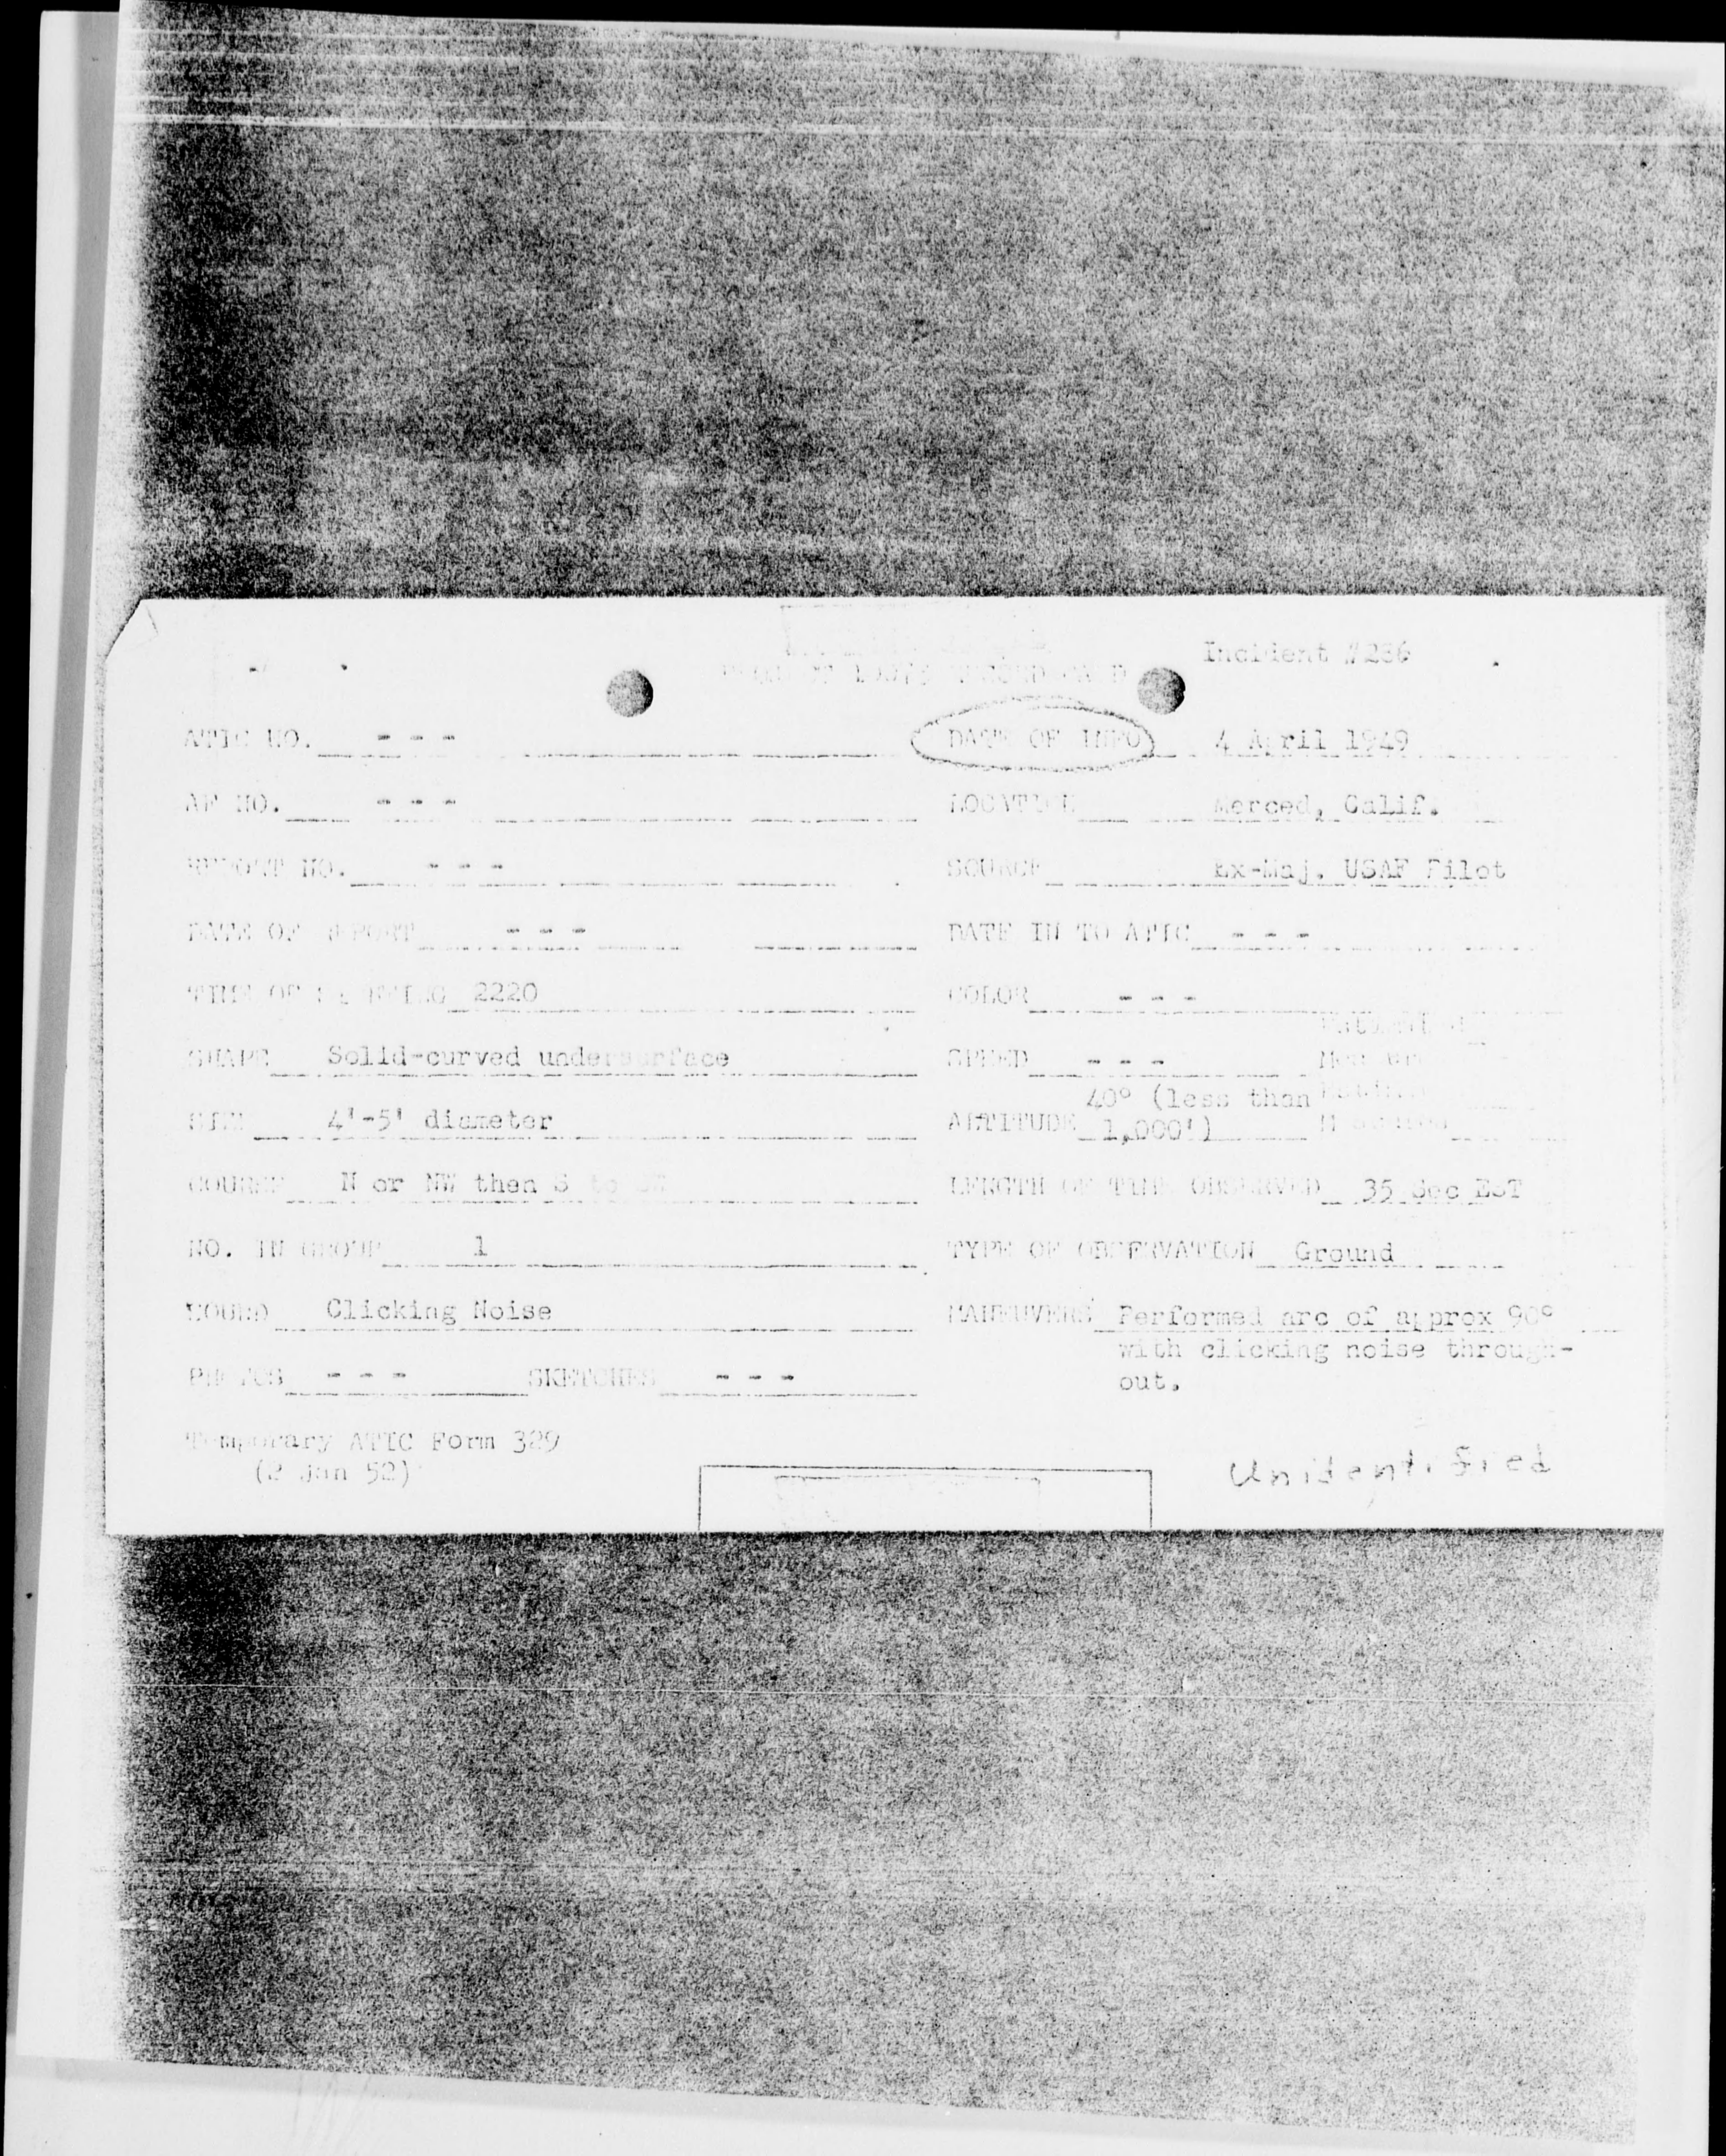 Incident #236
ATIC NO. - - -
DATE OF INFO 4 April 1949
AF NO. - - -
LOCATION Merced, Calif.
REPORT NO. - - -
SOURCE Ex-Maj. USAF Pilot
DATE OF REPORT - - -
DATE IN TO ATIC - - -
TIME OF SIGHTING 2220
COLOR - - -
SHAPE Solid-curved undersurface
SPEED - - -
SIZE 4'-5' diameter
ALTITUDE 40° (less than
1,000')
COURSE N or NW then S to
LENGTH OF TIME OBSERVED 35 Sec EST
NO. IN GROUP 1
TYPE OF OBSERVATION Ground
SOUND Clicking Noise
MANEUVERS Performed arc of approx 90°
with clicking noise through-
out.
PHOTOS - - - SKETCHES - - -
Temporary ATIC Form 329
(2 Jan 52)
Unidentified